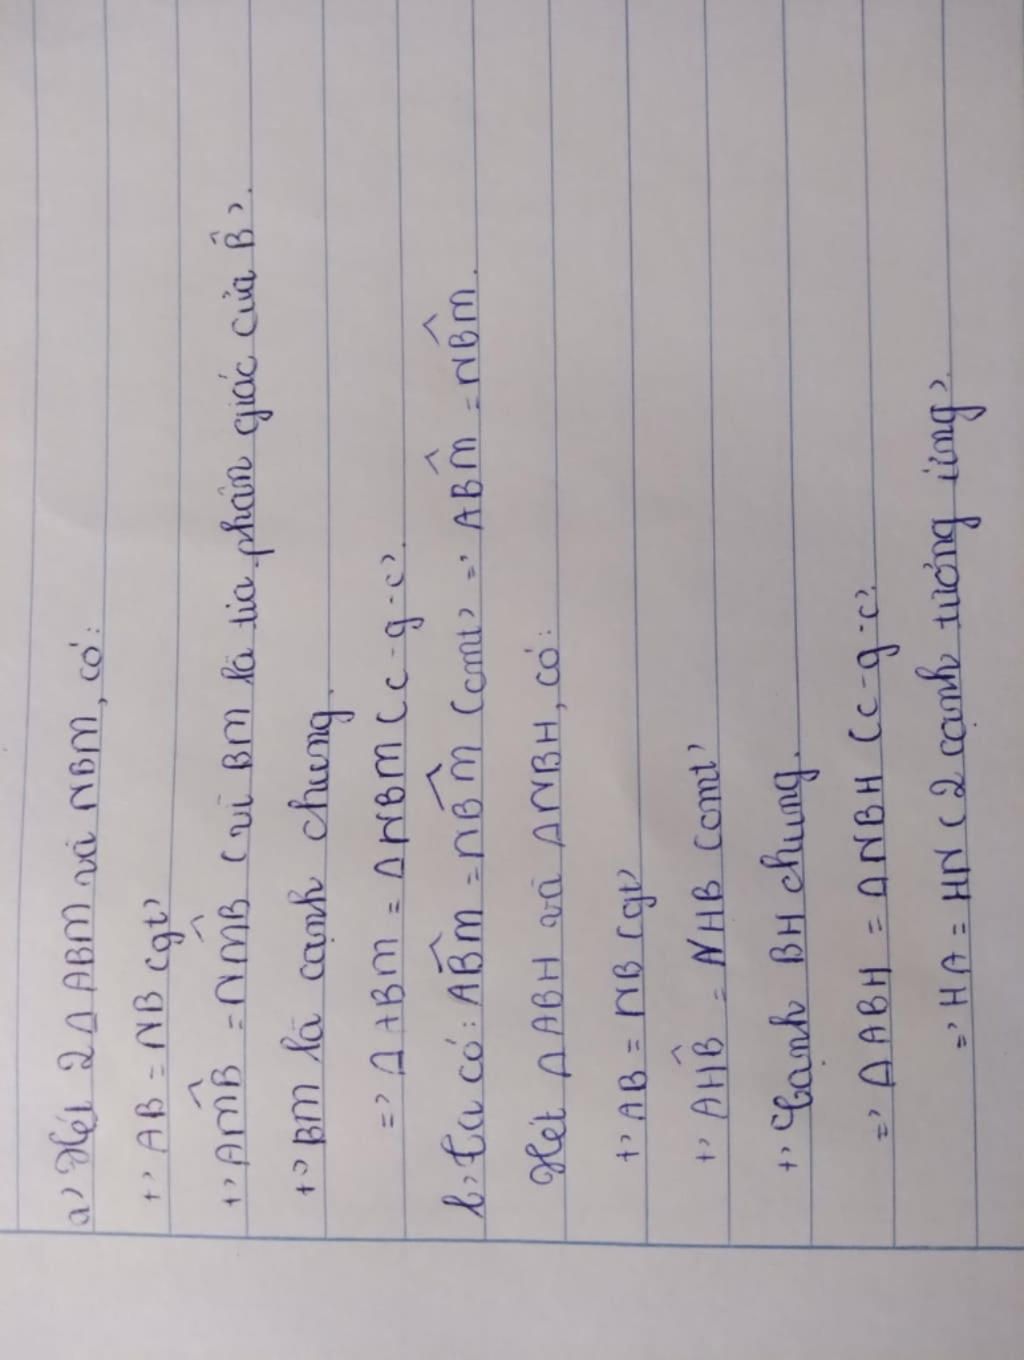 a) Xét 2 Δ ABM và NBM, có:
+) AB = NB (gt)
+) AM̂B = NM̂B (vì BM là tia phân giác của B̂).
+) BM là cạnh chung.
=) Δ ABM = Δ NBM (c-g-c).
b) Ta có: AB̂M = NB̂M (cmt) =) AB̂M = NB̂M.
Xét Δ ABH và Δ NBH, có:
+) AB = NB (gt)
+) AĤB = NHB (cmt)
+) Cạnh BH chung.
=) Δ ABH = Δ NBH (c-g-c).
=) HA = HN (2 cạnh tương ứng).